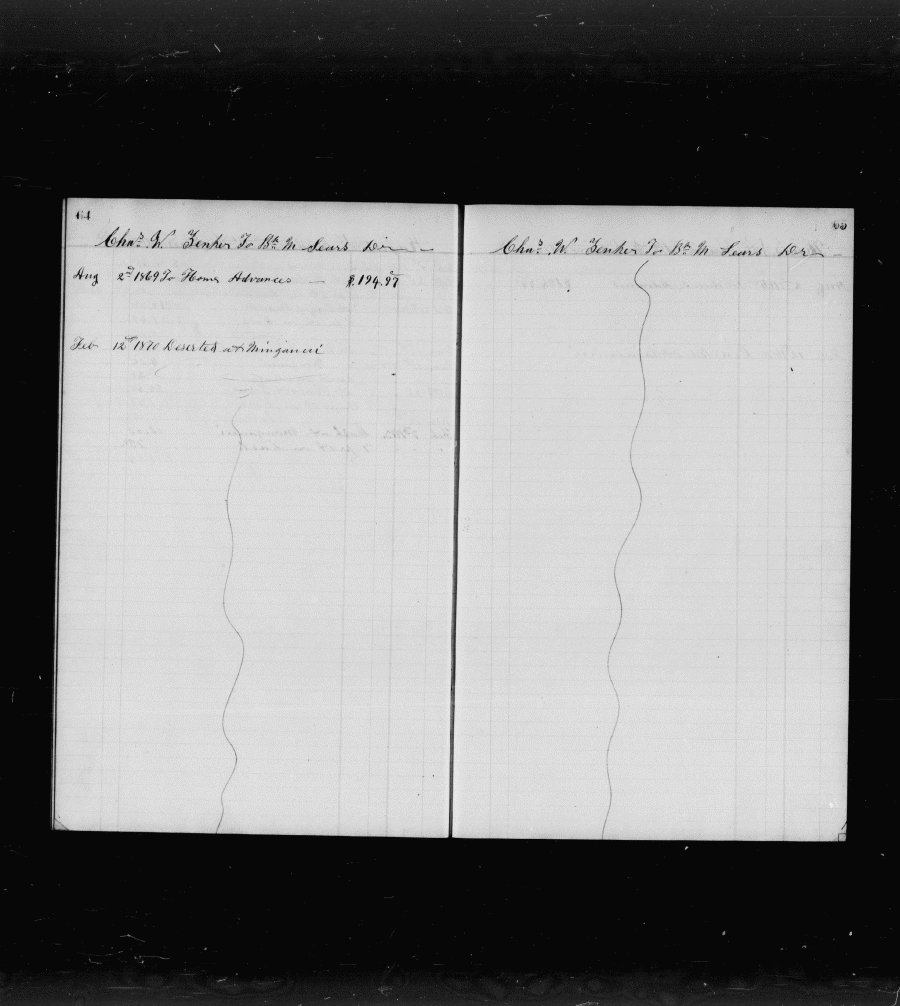 64
Chas. W. Zenker To Bk M Sears Dr
Aug 2nd 1869 To Home Advances — $194.97
Feb 12th 1870 Deserted at Minganui
65
Chas. W. Zenker To Bk M Sears Dr